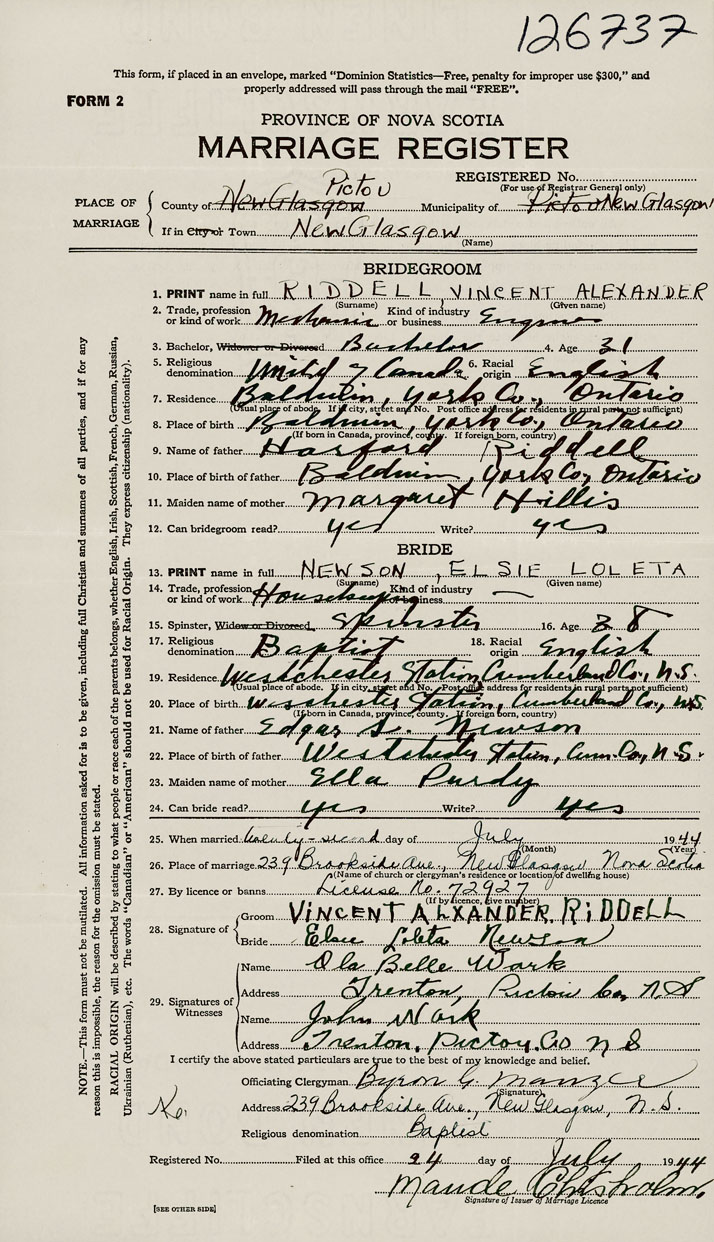 126737
This form, if placed in an envelope, marked “Dominion Statistics—Free, penalty for improper use $300,” and
properly addressed will pass through the mail “FREE”.
FORM 2
PROVINCE OF NOVA SCOTIA
MARRIAGE REGISTER
REGISTERED No.
(For use of Registrar General only)
PLACE OF MARRIAGE
County of New Glasgow Pictou Municipality of Pictou New Glasgow
If in City or Town New Glasgow
(Name)
BRIDEGROOM
1. PRINT name in full RIDDELL, VINCENT ALEXANDER
(Surname) (Given name)
2. Trade, profession or kind of work Mechanic Kind of industry or business
3. Bachelor, Widower or Divorced Bachelor 4. Age 31
5. Religious denomination United of Canada 6. Racial origin English
7. Residence Baldwin, York Co., Ontario
(Usual place of abode. If in city, street and No. Post office address for residents in rural parts not sufficient)
8. Place of birth Baldwin, York Co., Ontario
(If born in Canada, province, county. If foreign born, country)
9. Name of father Harford Riddell
10. Place of birth of father Baldwin, York Co, Ontario
11. Maiden name of mother Margaret Hillis
12. Can bridegroom read? yes Write? yes
BRIDE
13. PRINT name in full NEWSON, ELSIE LOLETA
(Surname) (Given name)
14. Trade, profession or kind of work Housekeeping Kind of industry or business —
15. Spinster, Widow or Divorced Spinster 16. Age 38
17. Religious denomination Baptist 18. Racial origin English
19. Residence Westchester Station, Cumberland Co., N.S.
(Usual place of abode. If in city, street and No. Post office address for residents in rural parts not sufficient)
20. Place of birth Westchester Station, Cumberland Co., N.S.
(If born in Canada, province, county. If foreign born, country)
21. Name of father Edgar Newson
22. Place of birth of father Westchester Station, Cum. Co., N.S.
23. Maiden name of mother Ella Purdy
24. Can bride read? yes Write? yes
25. When married twenty-second day of July 1944
(Month) (Year)
26. Place of marriage 239 Brookside Ave., New Glasgow Nova Scotia
(Name of church or clergyman's residence or location of dwelling house)
27. By licence or banns License No. 72927
(If by licence, give number)
28. Signature of Groom VINCENT ALXANDER. RIDDELL
Bride Elsie Loleta Newson
29. Signatures of Witnesses
Name Ola Belle Work
Address Trenton, Pictou Co, N S
Name John Work
Address Trenton, Pictou. Co N S
I certify the above stated particulars are true to the best of my knowledge and belief.
Officiating Clergyman Byron G.
(Signature)
Address 239 Brookside Ave., New Glasgow, N.S.
Religious denomination Baptist
Registered No. Filed at this office 24 day of July 1944
Maude Chisholm.
Signature of Issuer of Marriage Licence
[SEE OTHER SIDE]
NOTE.—This form must not be mutilated. All information asked for is to be given, including full Christian and surnames of all parties, and if for any
reason this is impossible, the reason for the omission must be stated.
RACIAL ORIGIN will be described by stating to what people or race each of the parents belongs, whether English, Irish, Scottish, French, German, Russian,
Ukrainian (Ruthenian), etc. The words “Canadian” or “American” should not be used for Racial Origin. They express citizenship (nationality).